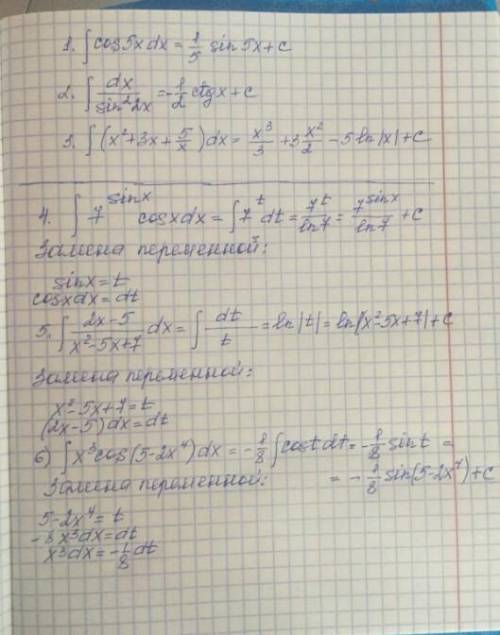 1. ∫cos5x dx = 1/5 sin5x+c
2. ∫ dx/sin²2x = -1/2 ctgx+c
3. ∫(x²+3x+5/x)dx = x³/3 +3 x²/2 - 5ln|x|+c
4. ∫ 7^sinx cosxdx = ∫7^t dt = 7^t/ln7 = 7^sinx/ln7 + c
Замена переменной:
sinx = t
cosxdx = dt
5. ∫ 2x-5/x²-5x+7 dx = ∫ dt/t = ln|t| = ln|x²-5x+7|+c
Замена переменной:
x²-5x+7=t
(2x-5)dx=dt
6) ∫x³cos(5-2x⁴)dx = -1/8 ∫cost dt = -1/8 sint =
Замена переменной:
= -1/8 sin(5-2x⁴)+c
5-2x⁴=t
-8x³dx=dt
x³dx=-1/8 dt